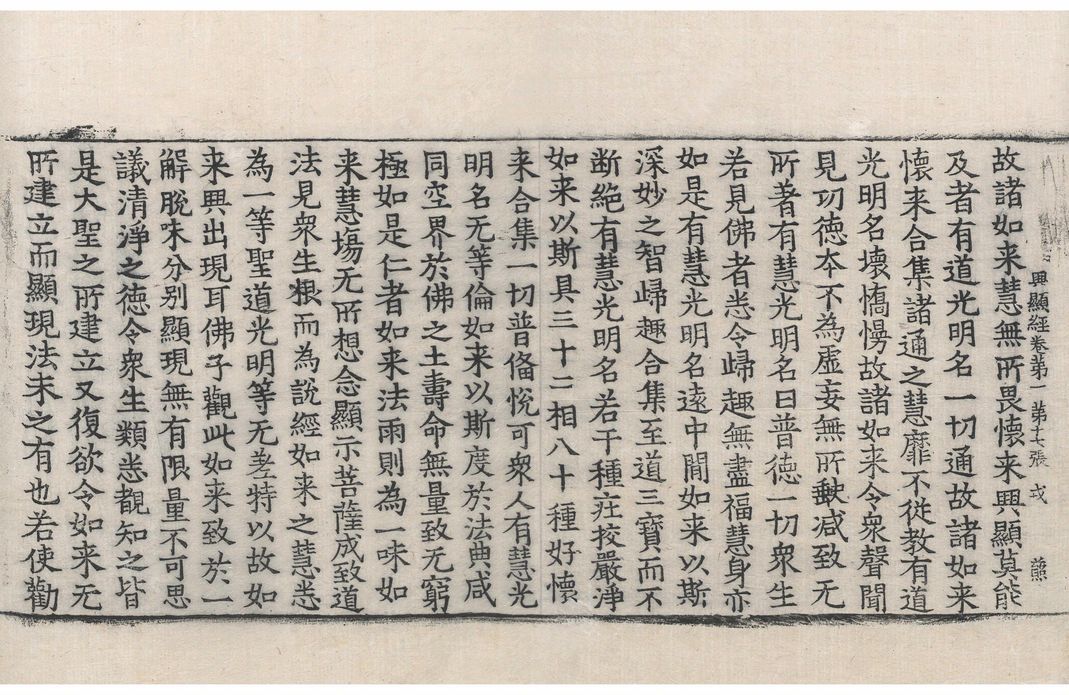 興顯經卷第一 第十七張 戎 蕐
故諸如来慧無所畏懷来興顯莫能
及者有道光明名一切通故諸如来
懷来合集諸通之慧靡不従教有道
光明名壞憍慢故諸如来令衆聲聞
見功徳夲不為虛妄無所𪉩减致无
所著有慧光明名曰普徳一切衆生
若見佛者悉令歸趣無盡福慧身亦
如是有慧光明名遠中閒如来以斯
深妙之智歸趣合集至道三寶而不
断絶有慧光明名若干種莊挍嚴淨
如来以斯具三十二相八十種好懷
来合集一切普俻悅可衆人有慧光
明名无等倫如来以斯度於法典咸
同空界於佛之土壽命無量致无窮
極如是仁者如来法雨則為一味如
来慧場无所想念顯示菩薩成致道
法見衆生根而為說經如来之慧悉
為一等聖道光明等无差特以故如
来興出現耳佛子觀此如来致於一
解脫味分别顯現無有限量不可思
議清淨之徳令衆生類悉覩知之皆
是大聖之所建立又復欲令如来无
所建立而顯現法未之有也若使勸